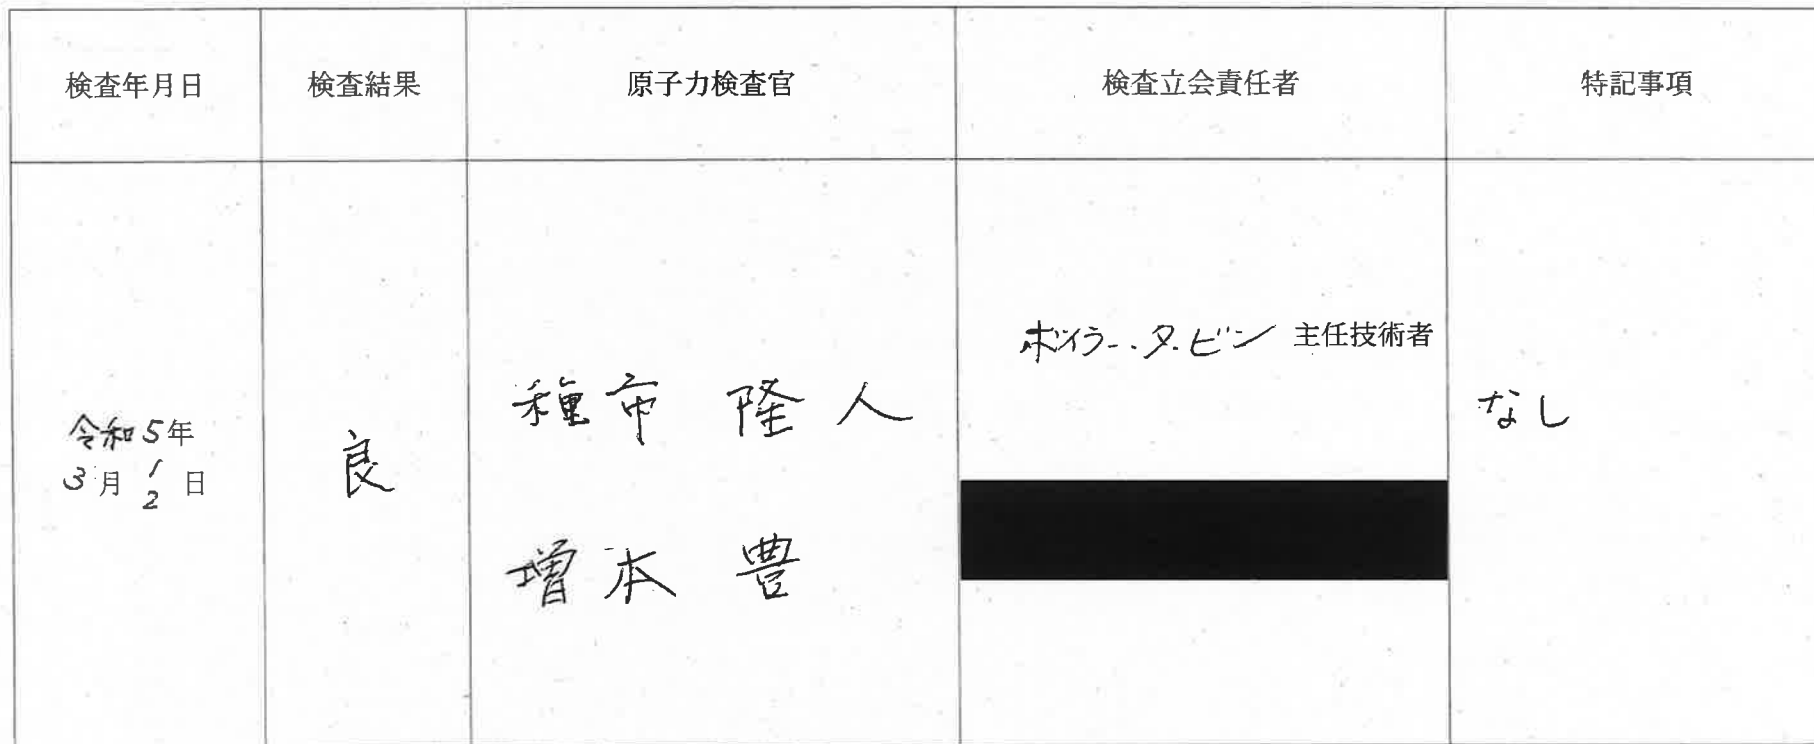 検査年月日 検査結果 原子力検査官 検査立会責任者 特記事項
令和5年
3月12日
良
種市 隆人
増本 豊
ボイラー・タービン 主任技術者
なし